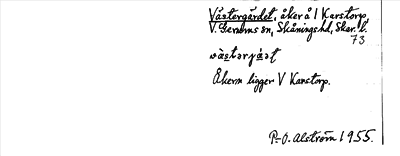 Västergärdet, åker å 1 Karstorp,
V. Gerums sn, Skånings hd, Skar. l.
73
Åkern ligger V Karstorp.
P-O. Alström 1955.